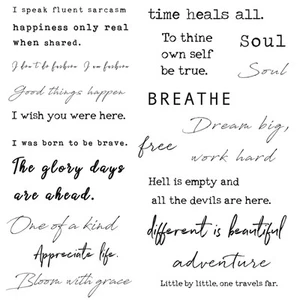 I speak fluent sarcasm
happiness only real
when shared.
I don't do fashion. I am fashion
Good things happen
I wish you were here.
I was born to be brave.
The glory days
are ahead.
One of a kind
Appreciate life.
Bloom with grace
time heals all.
To thine
own self
be true.
Soul
Soul
BREATHE
Dream big,
work hard
free
Hell is empty and
all the devils are here.
different is beautiful
adventure
Little by little, one travels far.